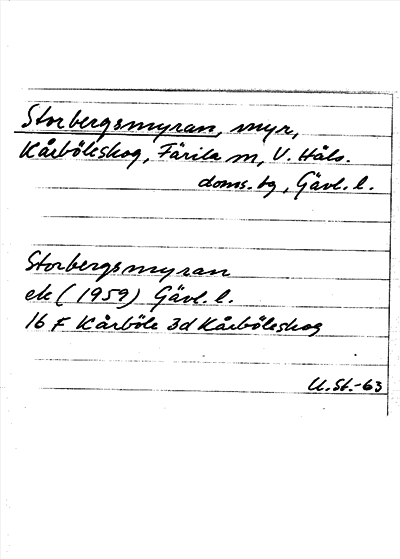 Storbergsmyran, myr,
Kårböleskog, Färila sn, V. Häls.
doms. bg, Gävl. l.
Storbergsmyran
ek (1959) Gävl. l.
16 F Kårböle 3d Kårböleskog
U.St.-63